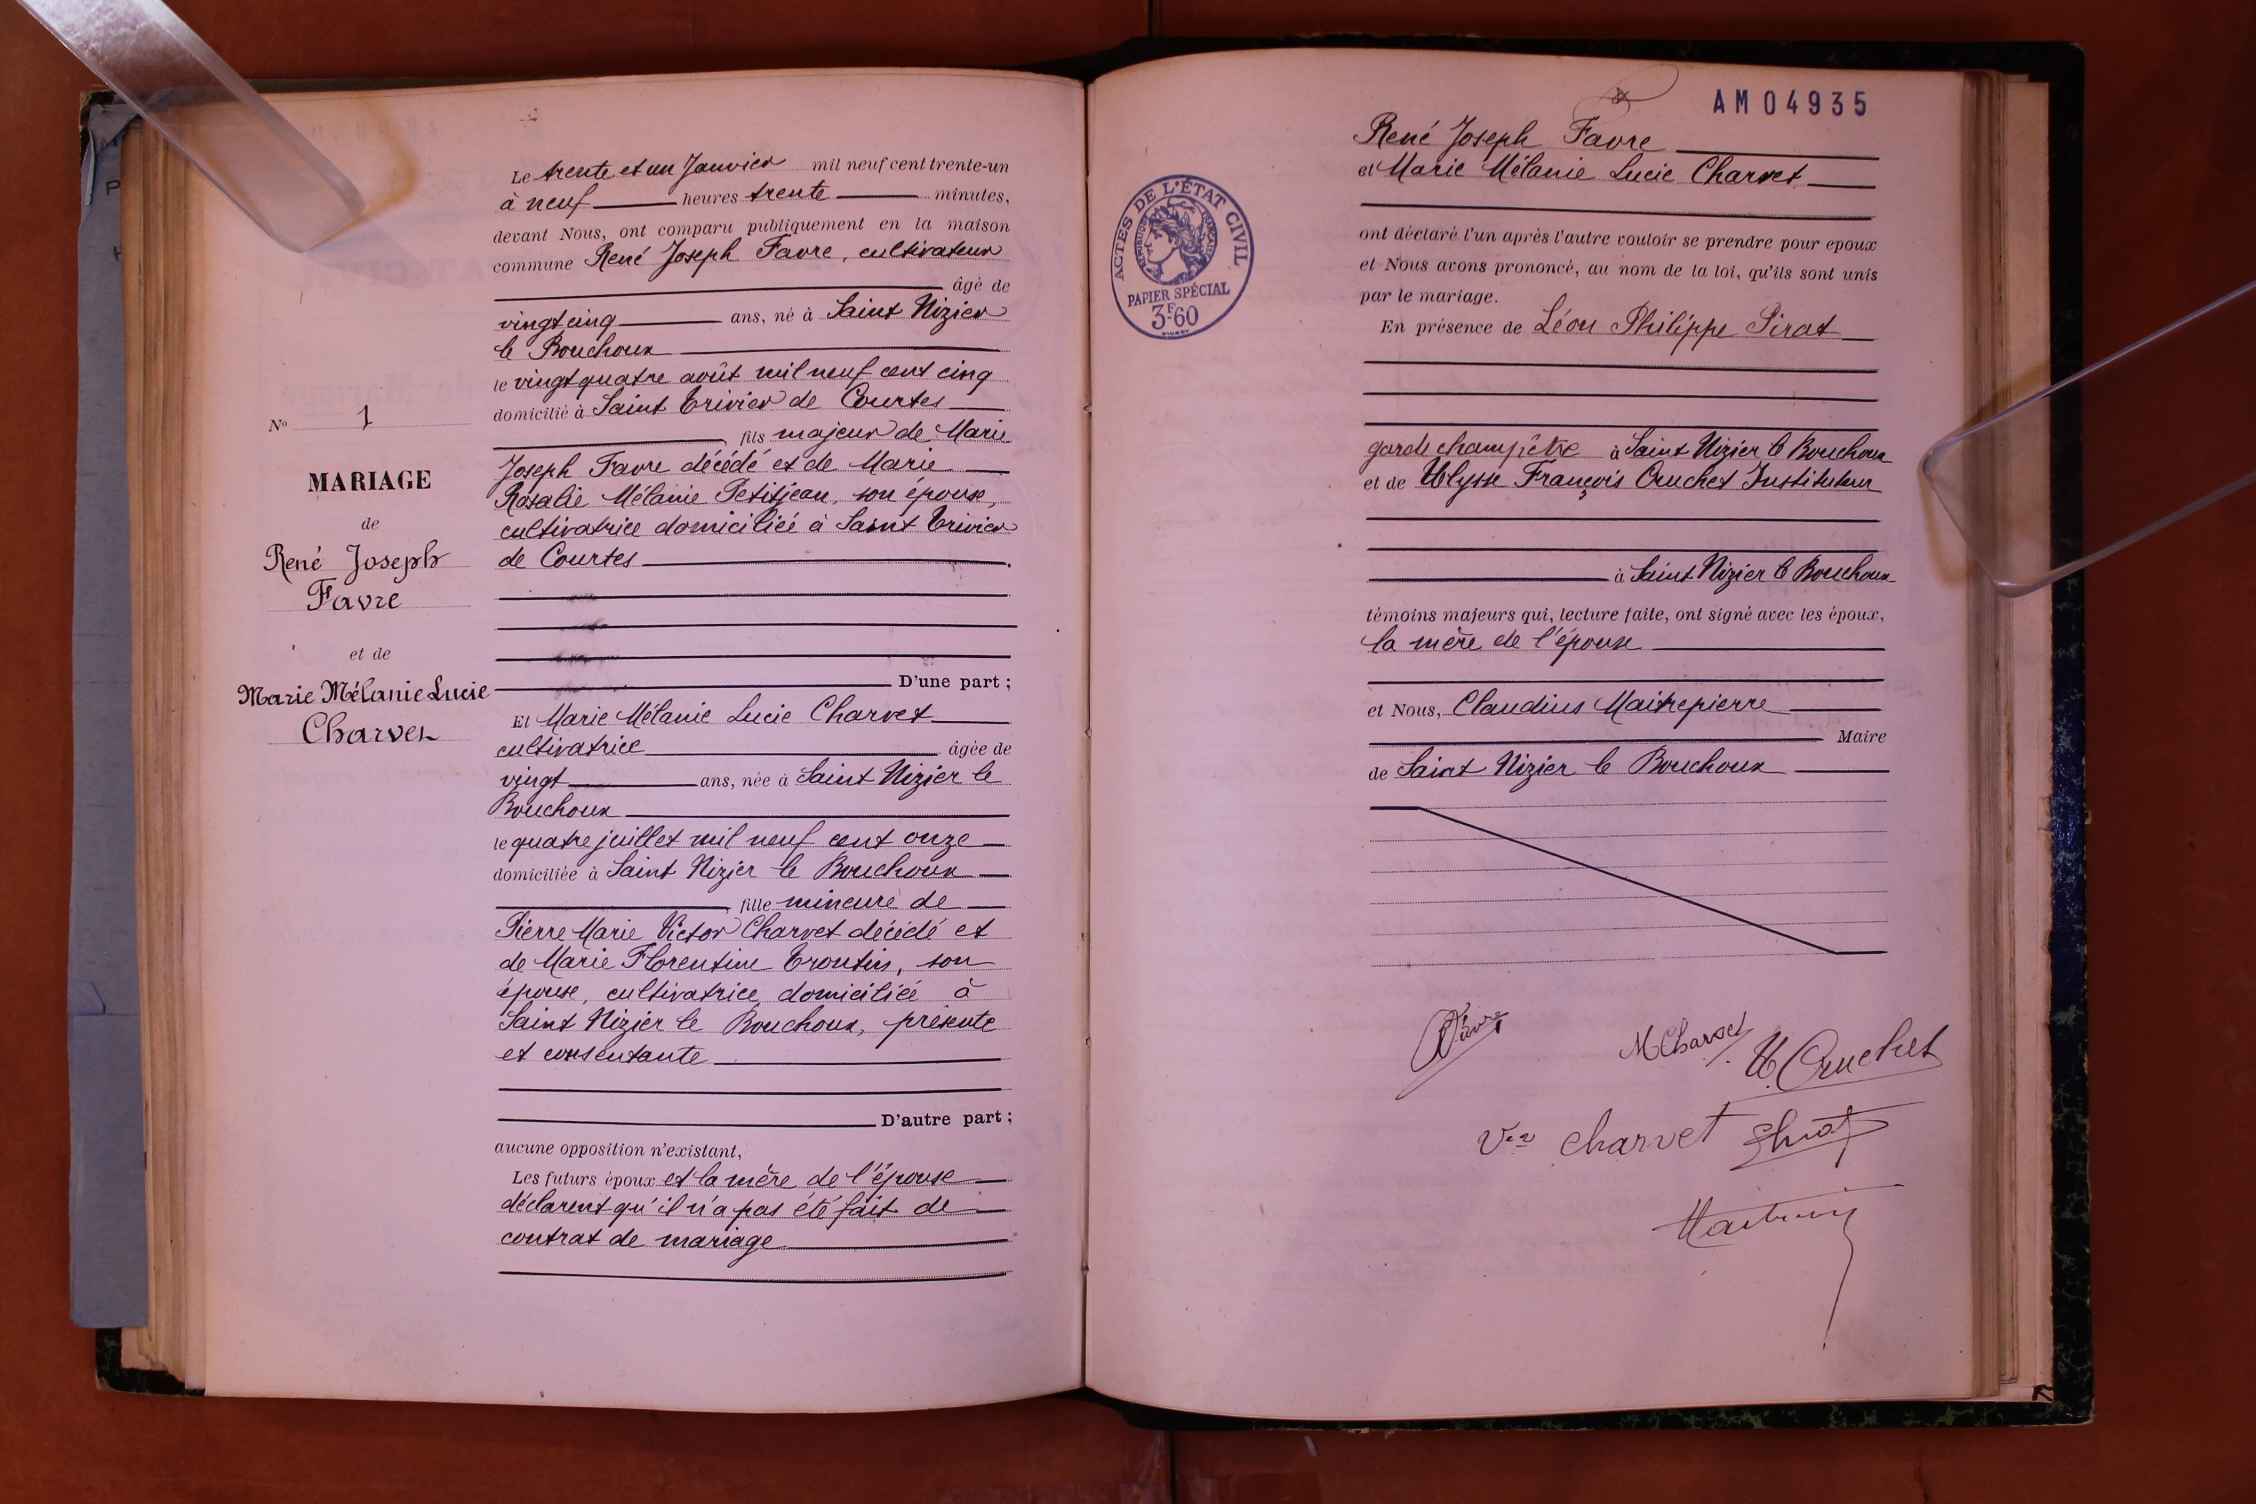 Le trente et un Janvier mil neuf cent trente-un
à neuf heures trente minutes,
devant Nous, ont comparu publiquement en la maison
commune René Joseph Favre, cultivateur
âgé de
vingt cinq ans, né à Saint Nizier
le Bouchoux
le vingt quatre août mil neuf cent cinq
domicilié à Saint Trivier de Courtes
fils majeur de Marie
Joseph Favre décédé et de Marie
Rosalie Mélanie Petitjean, son épouse,
cultivatrice domiciliée à Saint Trivier
de Courtes
D'une part;
Et Marie Mélanie Lucie Charvet
cultivatrice âgée de
vingt ans, née à Saint Nizier le
Bouchoux
le quatre juillet mil neuf cent onze
domiciliée à Saint Nizier le Bouchoux
fille mineure de
Pierre Marie Victor Charvet décédé et
de Marie Florentine Troutin, son
épouse, cultivatrice domiciliée à
Saint Nizier le Bouchoux, présente
et consentante
D'autre part;
aucune opposition n'existant,
Les futurs époux et la mère de l'épouse
déclarent qu'il n'a pas été fait de
contrat de mariage
No 1
MARIAGE
de
René Joseph
Favre
et de
Marie Mélanie Lucie
Charvet
AM04935
ACTES DE L'ÉTAT CIVIL
RÉPUBLIQUE FRANÇAISE
PAPIER SPÉCIAL
3F60
René Joseph Favre
et Marie Mélanie Lucie Charvet
ont déclaré l'un après l'autre vouloir se prendre pour époux
et Nous avons prononcé, au nom de la loi, qu'ils sont unis
par le mariage.
En présence de Léon Philippe Pirat
garde champêtre à Saint Nizier le Bouchoux
et de Ulysse François Cruchet Instituteur
à Saint Nizier le Bouchoux
témoins majeurs qui, lecture faite, ont signé avec les époux,
la mère de l'épouse
et Nous, Claudius Maitrepierre
Maire
de Saint Nizier le Bouchoux
Favre
M Charvet
U. Cruchet
Vve Charvet